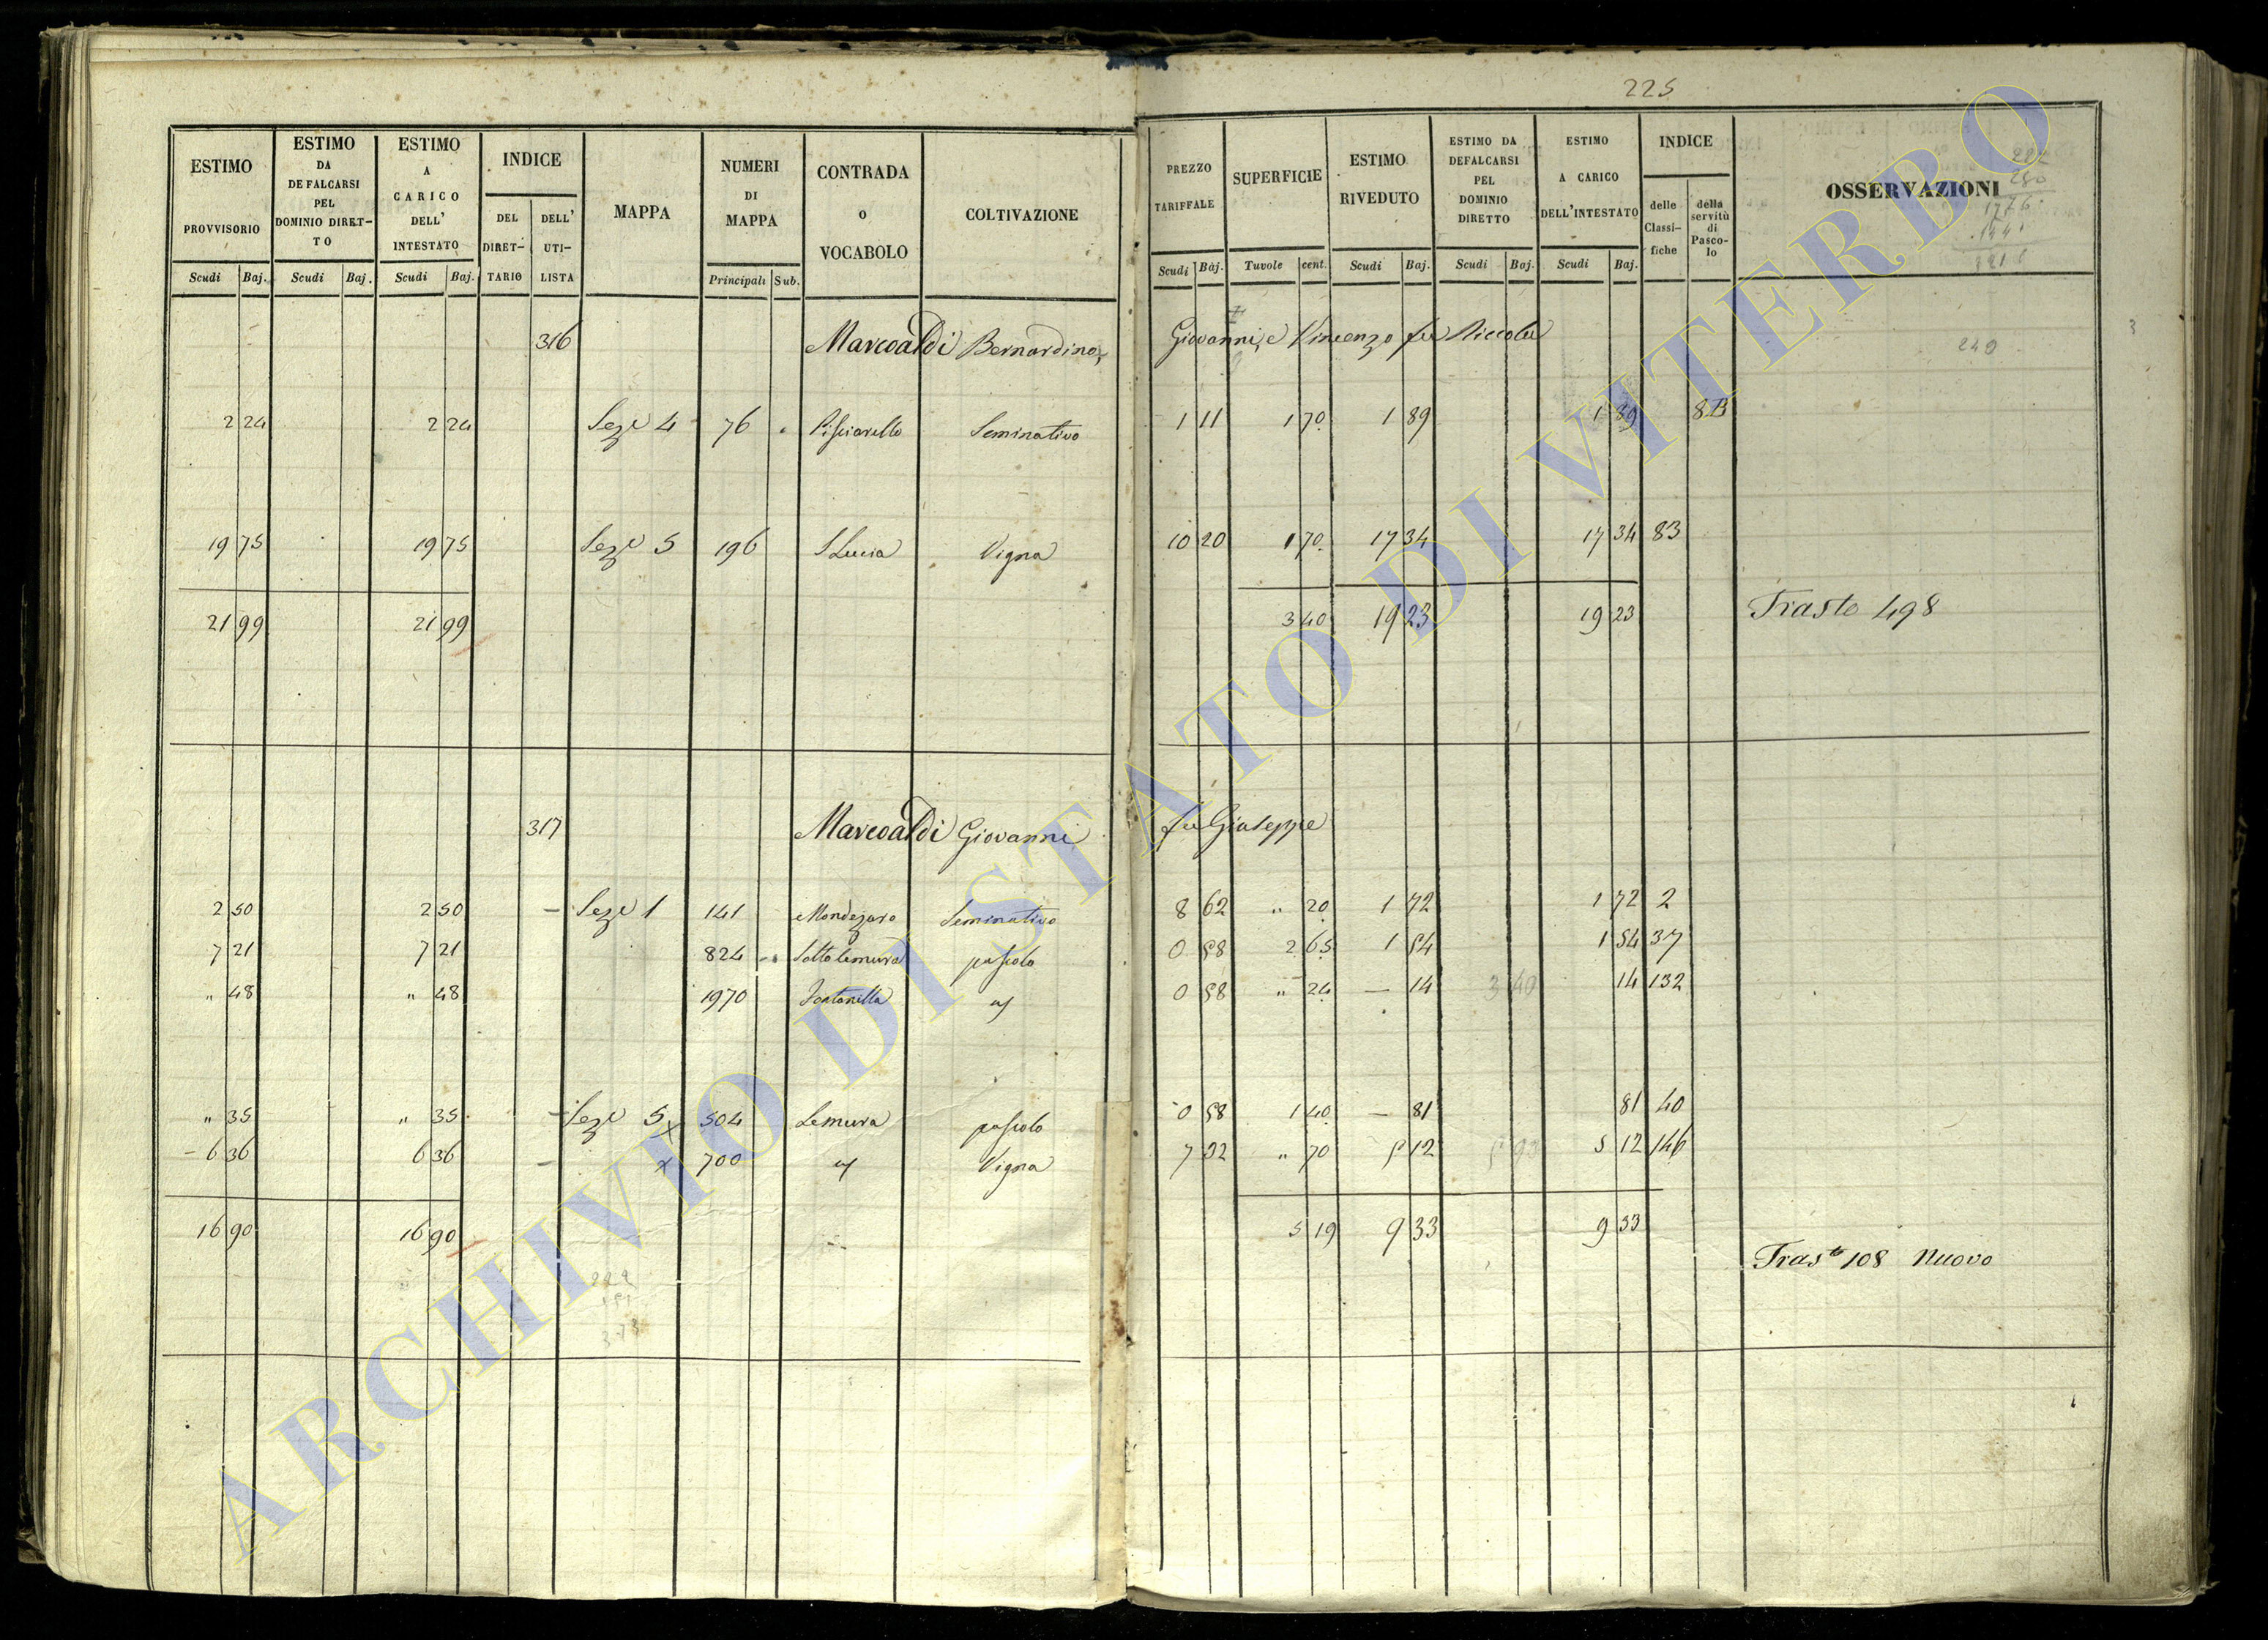 225
ESTIMO PROVVISORIO | ESTIMO DA DEFALCARSI PEL DOMINIO DIRETTO | ESTIMO A CARICO DELL' INTESTATO | INDICE DEL DIRETTARIO | DELL' UTILISTA | MAPPA | NUMERI DI MAPPA | CONTRADA O VOCABOLO | COLTIVAZIONE | PREZZO TARIFFALE | SUPERFICIE | ESTIMO RIVEDUTO | ESTIMO DA DEFALCARSI PEL DOMINIO DIRETTO | ESTIMO A CARICO DELL'INTESTATO | INDICE delle Classifiche | della servitù di Pascolo | OSSERVAZIONI
Scudi Baj. | Scudi Baj. | Scudi Baj. | Principali Sub. | Scudi Baj. | Tavole cent. | Scudi Baj. | Scudi Baj. | Scudi Baj.
316 Marcoaldi Bernardino, Giovanni, e Vincenzo fu Niccola
249
2 24 | 2 24 | Seze 4 | 76 | Pisciarello | Seminativo | 1 11 | 1 70 | 1 89 | 1 89 | 8B
19 75 | 19 75 | Seze 5 | 196 | S Lucia | Vigna | 10 20 | 1 70 | 17 34 | 17 34 | 83
21 99 | 21 99 | 3 40 | 19 23 | 19 23 | Trasto 498
317 Marcoaldi Giovanni fu Giuseppe
2 50 | 2 50 | – Seze 1 | 141 | Mondezaro | Seminativo | 8 62 | " 20 | 1 72 | 1 72 | 2
7 21 | 7 21 | 824 | Sotto lemura | pascolo | 0 58 | 2 65 | 1 54 | 1 54 | 37
" 48 | " 48 | 1970 | Fontanella | 0 58 | " 24 | — 14 | 3 40 | 14 | 132
" 35 | " 35 | – Seze 5 x | 504 | Lemura | pascolo | 0 58 | 1 40 | — 81 | 81 | 40
6 36 | 6 36 | – x | 700 | Vigna | 7 32 | " 70 | 5 12 | 5 12 | 146
16 90 | 16 90 | 5 19 | 9 33 | 9 33
Trasto 108 Nuovo
ARCHIVIO DI STATO DI VITERBO